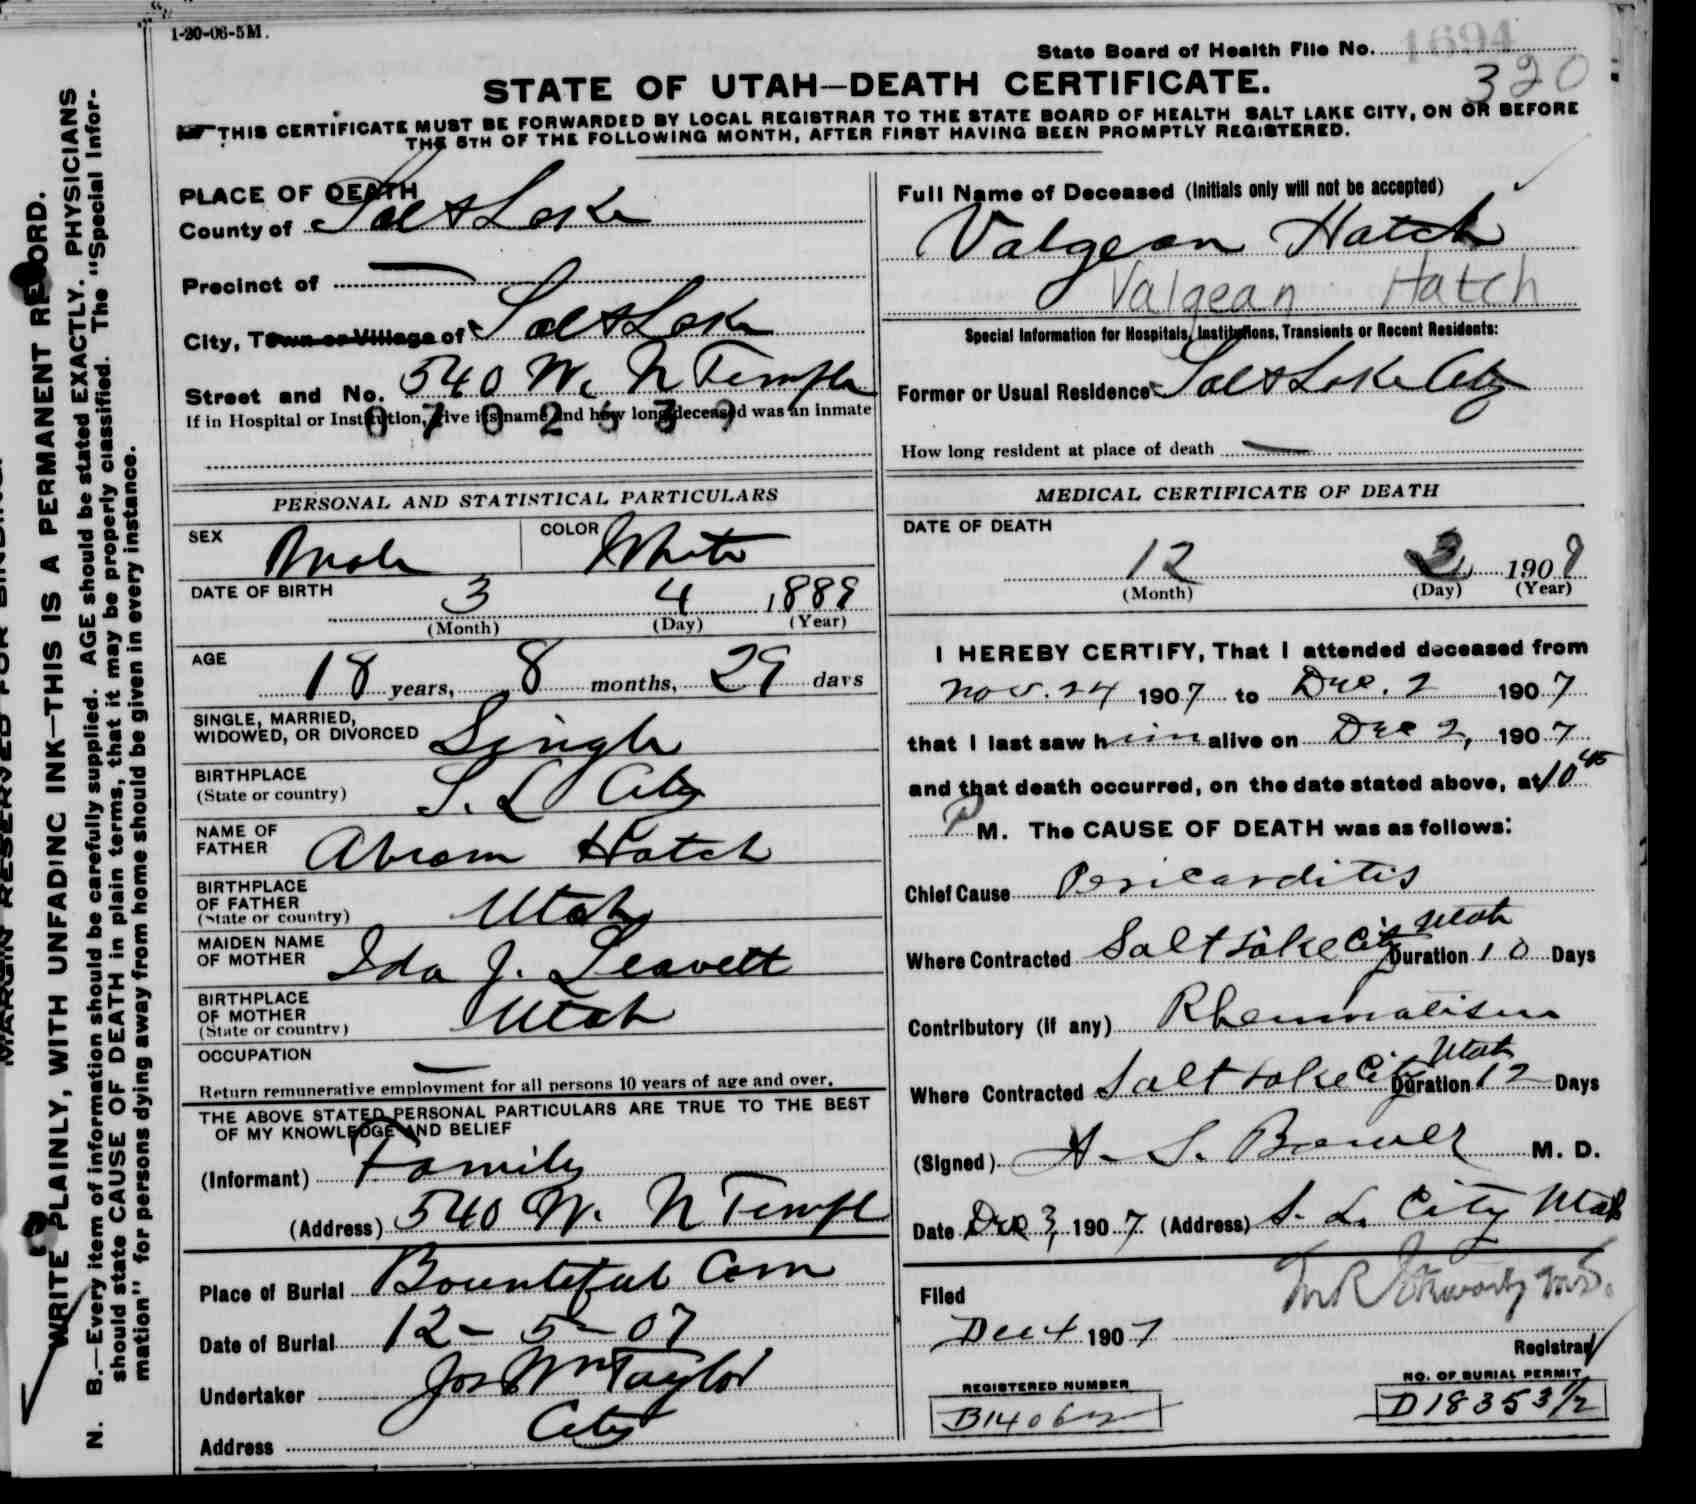 1-20-06-5M.
State Board of Health File No. 1694
320
STATE OF UTAH—DEATH CERTIFICATE.
THIS CERTIFICATE MUST BE FORWARDED BY LOCAL REGISTRAR TO THE STATE BOARD OF HEALTH SALT LAKE CITY, ON OR BEFORE
THE 5TH OF THE FOLLOWING MONTH, AFTER FIRST HAVING BEEN PROMPTLY REGISTERED.
WRITE PLAINLY, WITH UNFADING INK—THIS IS A PERMANENT RECORD.
N. B.—Every item of information should be carefully supplied. AGE should be stated EXACTLY. PHYSICIANS
should state CAUSE OF DEATH in plain terms, that it may be properly classified. The "Special Infor-
mation" for persons dying away from home should be given in every instance.
PLACE OF DEATH
County of Salt Lake
Precinct of —
City, Town or Village of Salt Lake
Street and No. 540 W. N Temple
If in Hospital or Institution, give its name and how long deceased was an inmate
Full Name of Deceased (Initials only will not be accepted)
Valgean Hatch
Valgean Hatch
Special Information for Hospitals, Institutions, Transients or Recent Residents:
Former or Usual Residence Salt Lake City
How long resident at place of death —
PERSONAL AND STATISTICAL PARTICULARS
SEX Male COLOR White
DATE OF BIRTH 3 4 1889
(Month) (Day) (Year)
AGE 18 years, 8 months, 29 days
SINGLE, MARRIED,
WIDOWED, OR DIVORCED Single
BIRTHPLACE
(State or country) S. L City
NAME OF
FATHER Abram Hatch
BIRTHPLACE
OF FATHER
(State or country) Utah
MAIDEN NAME
OF MOTHER Ida J. Leavett
BIRTHPLACE
OF MOTHER
(State or country) Utah
OCCUPATION —
Return remunerative employment for all persons 10 years of age and over.
THE ABOVE STATED PERSONAL PARTICULARS ARE TRUE TO THE BEST
OF MY KNOWLEDGE AND BELIEF
(Informant) Family
(Address) 540 W. N Templ
Place of Burial Bountiful Cem
Date of Burial 12-5-07
Undertaker Jos Wm Taylor
Address City
MEDICAL CERTIFICATE OF DEATH
DATE OF DEATH
12 2 190
(Month) (Day) (Year)
I HEREBY CERTIFY, That I attended deceased from
Nov. 24 1907 to Dec. 2 1907
that I last saw him alive on Dec 2, 1907
and that death occurred, on the date stated above, at 10 45
P M. The CAUSE OF DEATH was as follows:
Chief Cause Pericarditis
Where Contracted Salt Lake City Utah Duration 10 Days
Contributory (if any) Rheumatism
Where Contracted Salt Lake City Utah Duration 12 Days
(Signed) H. S. M. D.
Date Dec 3, 1907 (Address) S. L. City Utah
Filed
Dec 4 1907
Registrar
REGISTERED NUMBER
NO. OF BURIAL PERMIT
D18353½